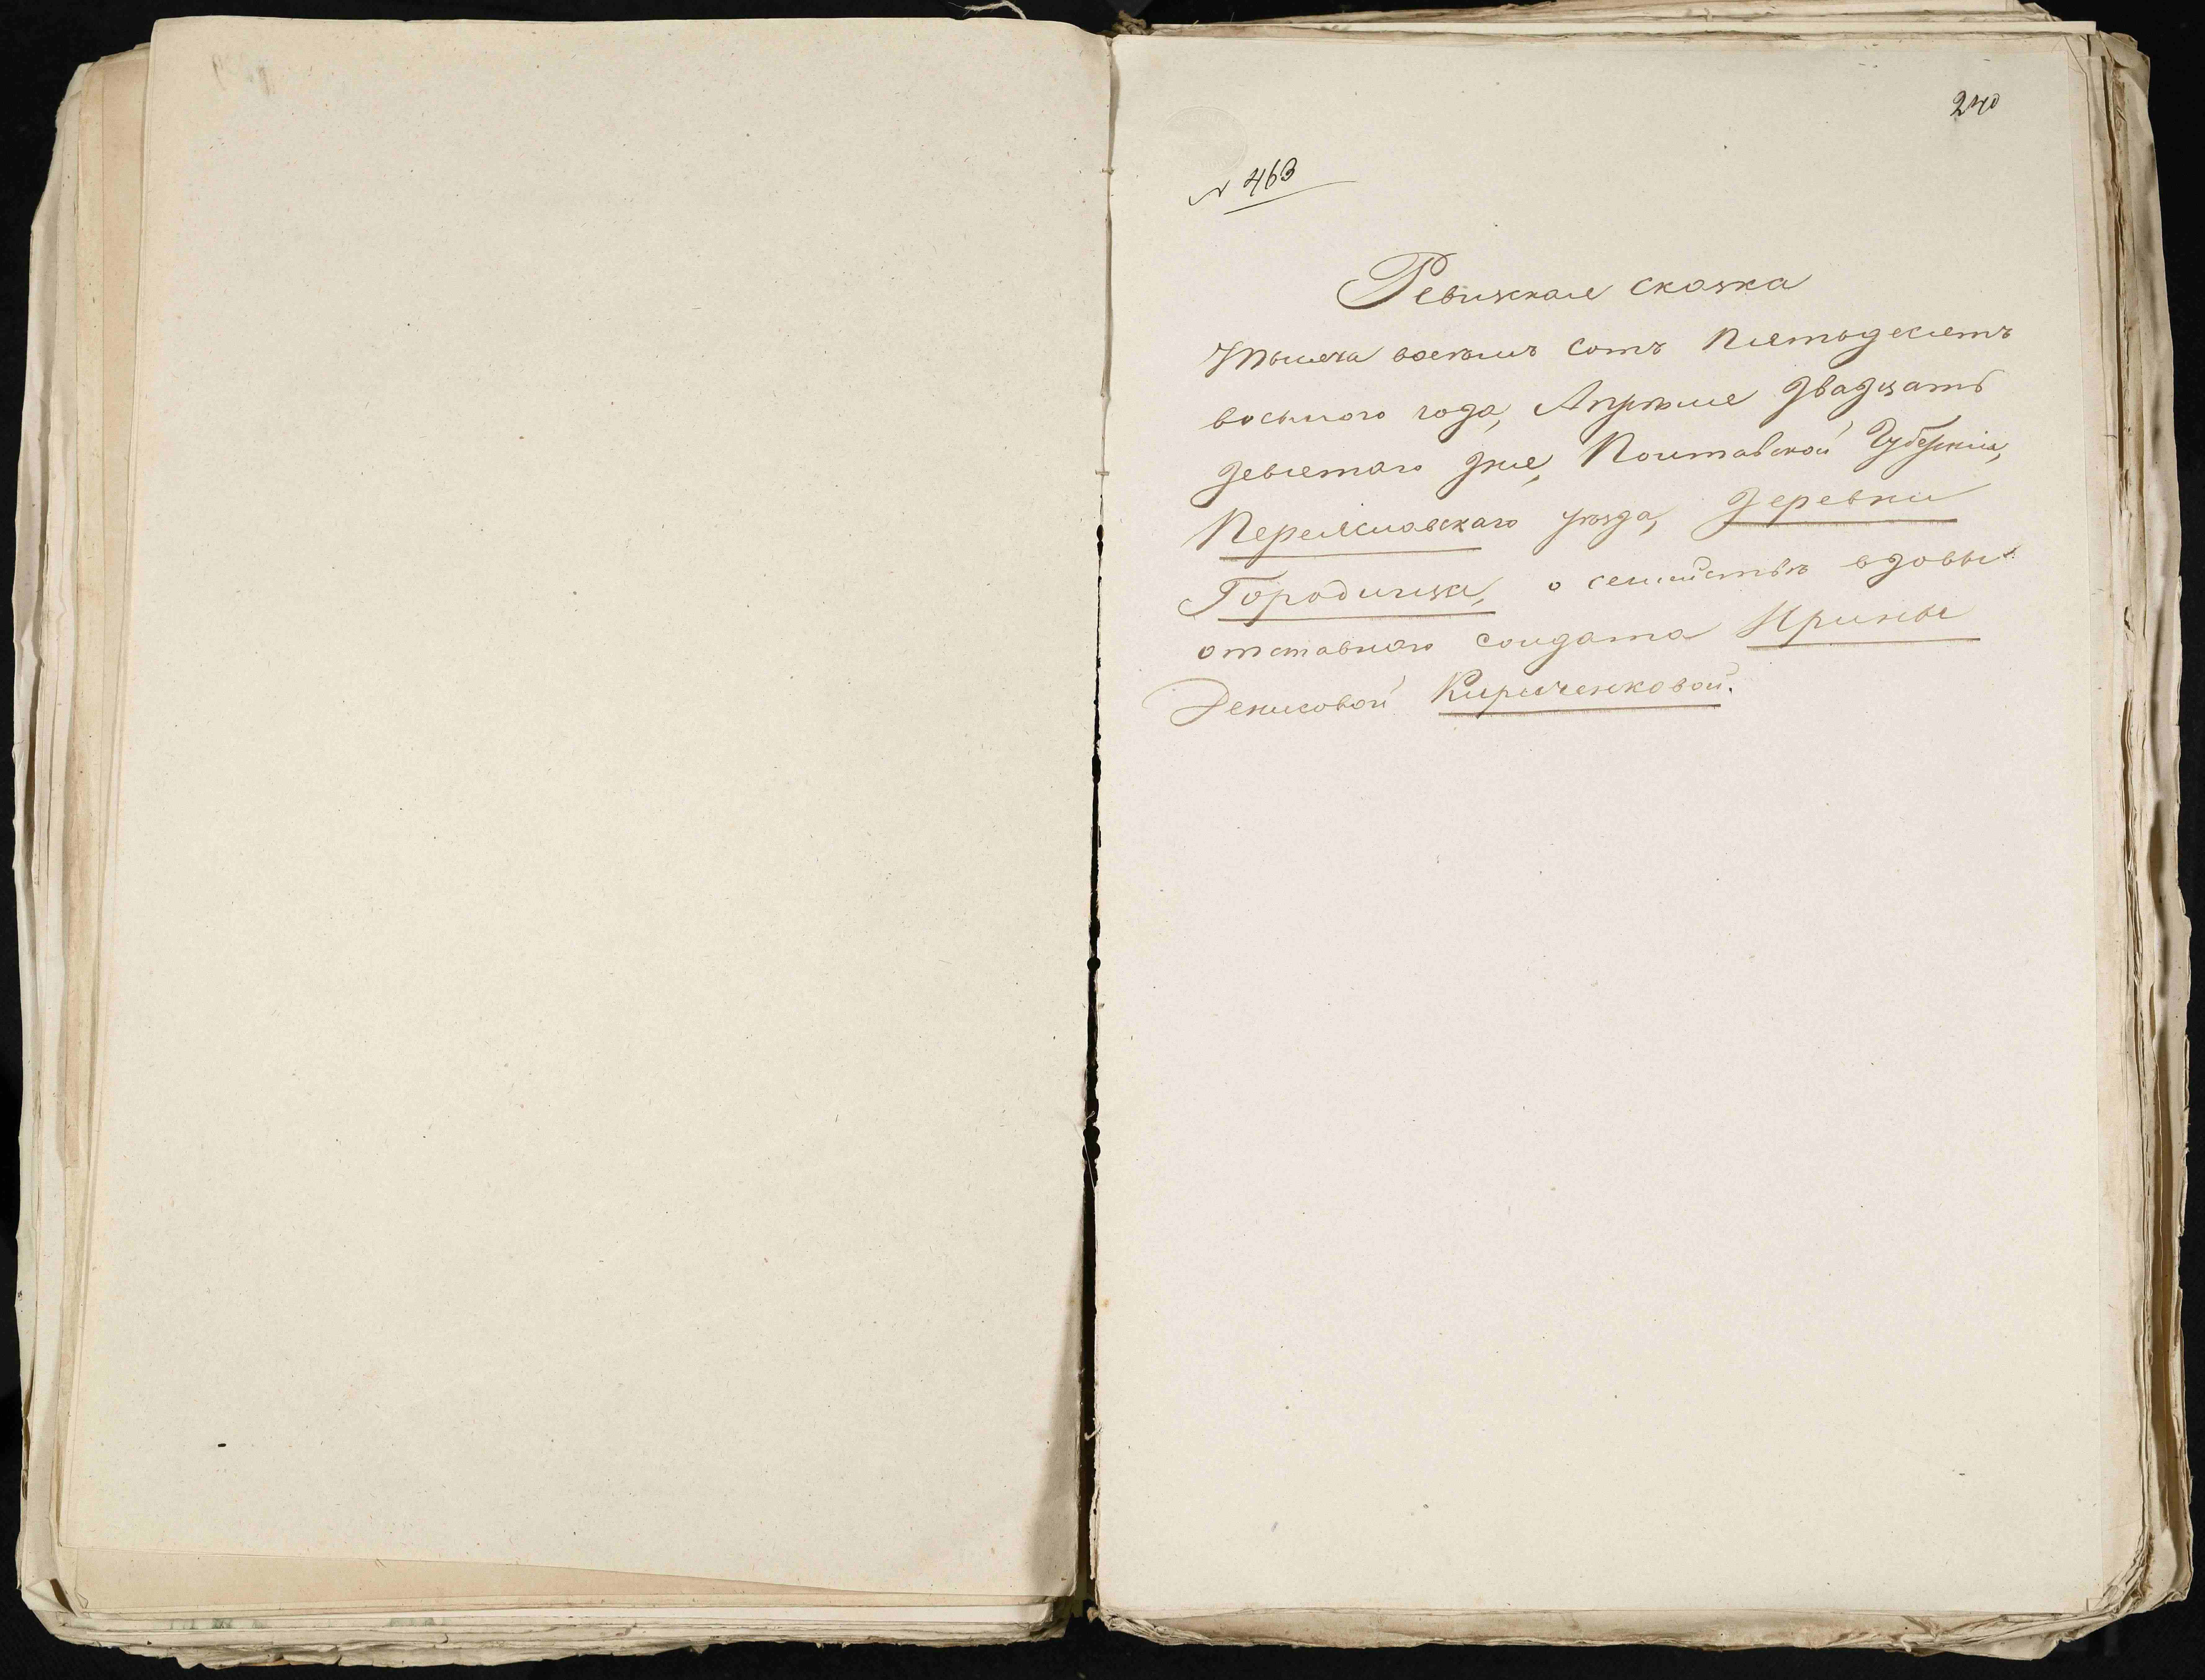 240
№ 463
Ревизская сказка
Тысяча восемь сотъ пятьдесятъ
восьмого года, Апрѣля двадцать
девятаго дня, Полтавской Губерніи,
Переяславскаго уѣзда, деревни
Городища, о семействѣ вдовы
отставнаго солдата Ирины
Денисовой Кириченковой.